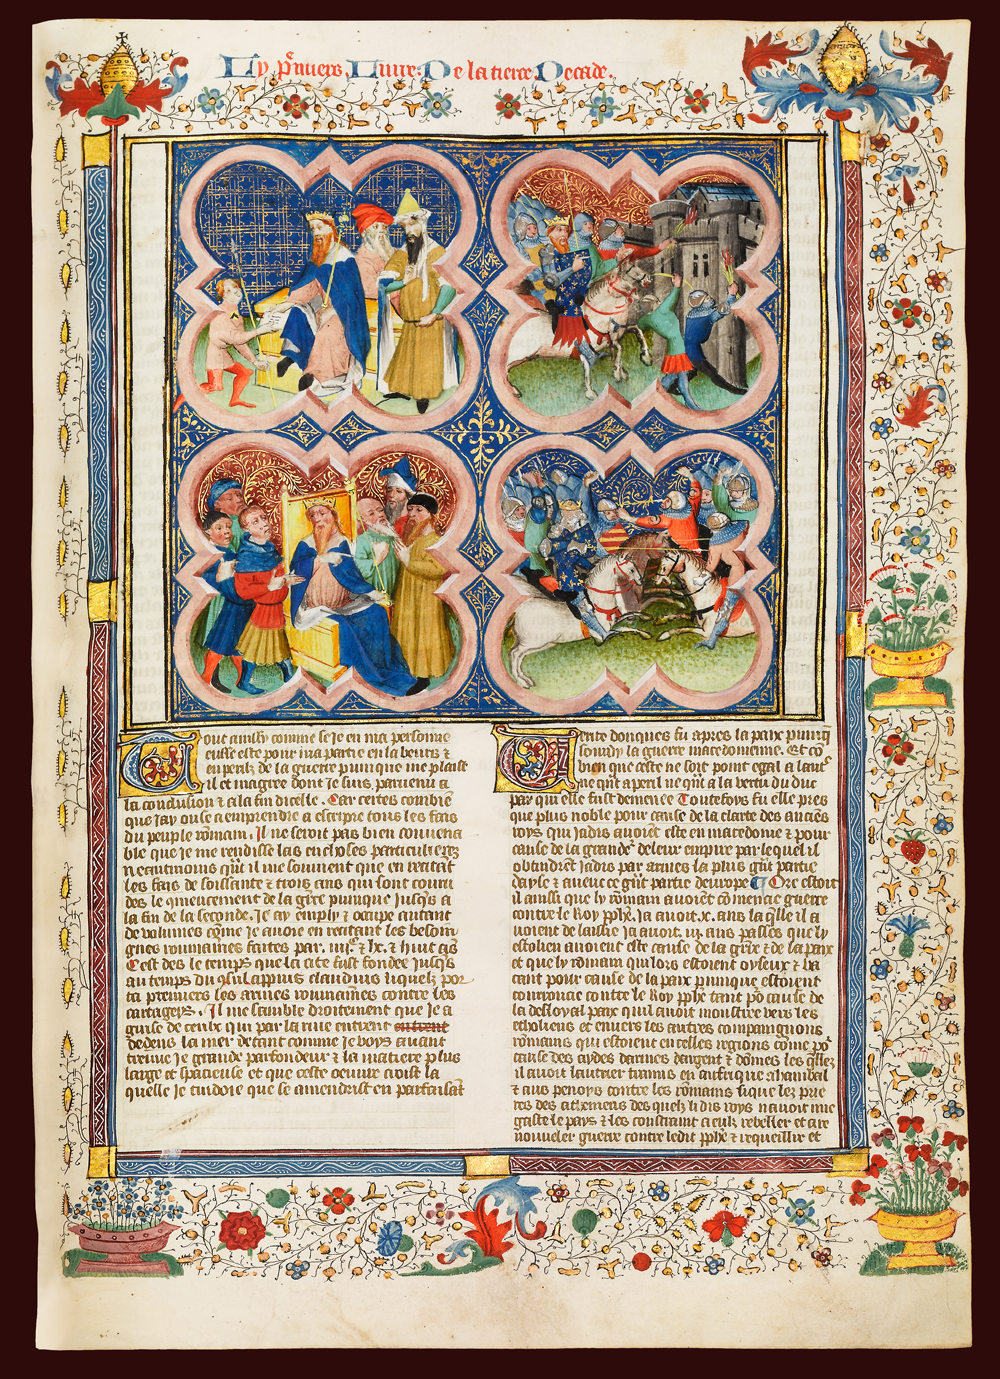 Ly p̄miers Liure: De la tierce Decade.
Tout ainssy comme se Je en ma personne
eusse este pour ma partie en la beurs ⁊
en perilz de la guerre punique me plaist
il et magree dont Je suis paruenu a
la conclusion ⁊ a la fin dicelle. Car certes combiē
que Jay ouse a emprendre a escripre tous les fais
du peuple rōmain. Il ne seroit pas bien conuena
ble que Je me rendisse las en choses particulieres
Neantmoins q̄nt il me souuient que en recitāt
les fais de soissante ⁊ trois ans qui sont couru
des le cōmencement de la gēre punique Jusq̄s a
la fin de la seconde. Je ay emply ⁊ ocupe autant
de volumes cōme Je auoie en recitant les besoin
gnes rommaines faites par. iiijc ⁊ lx. ⁊ huit ans
Cest des le temps que la cite fust fondee Jusq̄s
au temps du 9sul appius claudius liquelz por
ta premiers les armes rommaines contre les
cartagers. Il me samble droitement que Je a
guise de ceulx qui par la riue entrent entrent
dedens la mer de tant comme Je voys auant
treuue Je grande parfondeur ⁊ la matiere plus
large et spacieuse et que ceste oeuure croist la
quelle Je cuidoie que se amendrist en parfaisāt
Certe donques fu apres la paix puniq̄
sourdy la guerre macedonienne. Et cō
bien que ceste ne soit point egal a lautr̄
ne q̄nt a peril ne q̄nt a la vertu du duc
par qui elle fust demenee Toutefoys fu elle pres
que plus noble pour cause de la clarte des anciēs
roys qui Jadis auoiēt este en macedoine ⁊ pour
cause de la grandeʳ de leur empire par lequel il
obtindrēt Jadis par armes la plus gr̄nt partie
dayse ⁊ aueuc ce gr̄nt partie deurope ¶ Ore estoit
il ainssi que ly rōmain auoiēt cōmencie guerre
contre le Roy pph̄e. Ja auoit .x. ans la q̄lle il a
uoient de laissie Ja auoit. iij. ans passes que ly
etholien auoient este cause de la gēre ⁊ de la paix
et que ly rōmain qui lors estoient oyseux ⁊ va
cant pour cause de la paix punique estoient
courroucie contre le Roy pph̄e tant po᷑ cause de
la desloyal paix q̄l auoit monstre vers les
etholiens et enuers les autres compaingnons
rōmains qui estoient en celles regions cōme po᷑
cause des aydes darmes dargent ⁊ dōmes les q̄llez
il auoit lautrier tramis en auffrique a hanibal
⁊ aus penoys contre les rōmains lique lez prie
res des atheniens des quelz li dis roys auoit mlt
gaste le pays ⁊ les constraint a eulx rebeller et a re
nouueler guerre contre ledit pph̄e ⁊ requeillir et